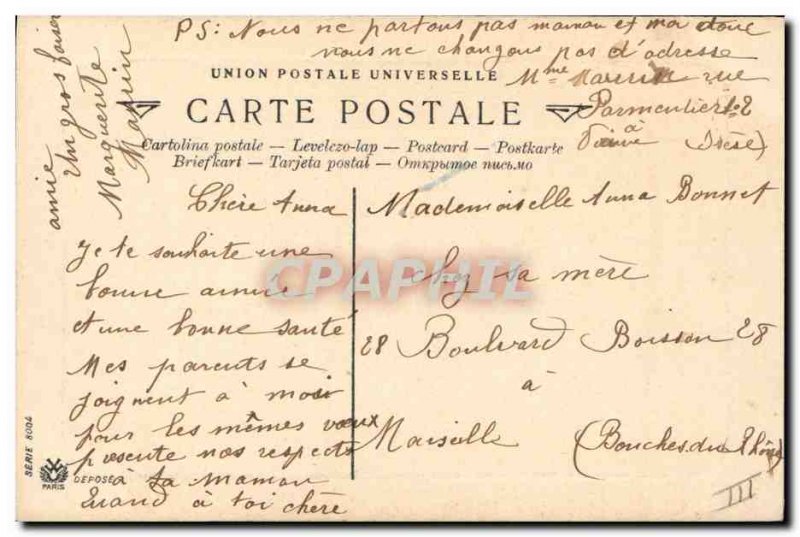 PS: Nous ne partons pas maman et moi donc
nous ne changons pas d'adresse
Mme Maurin rue
Parmentier No 2
à
(Isère)
UNION POSTALE UNIVERSELLE
CARTE POSTALE
Cartolina postale — Levelezo-lap — Postcard — Postkarte
Briefkart — Tarjeta postal — Открытое письмо
Chère Anna
Je te souhaite une
bonne année
et une bonne santé
Mes parents se
joignent à moi
pour les mêmes vœux
présente nos respects
à ta maman
Quand à toi chère
amie
Un gros baiser
Marguerite
Maurin
Mademoiselle Anna Bonnet
chez sa mère
28 Boulvard Boisson 28
à
Marseille
(Bouches du Rhône)
III
SÉRIE 8004
PARIS
DÉPOSÉ
CPAPHIL